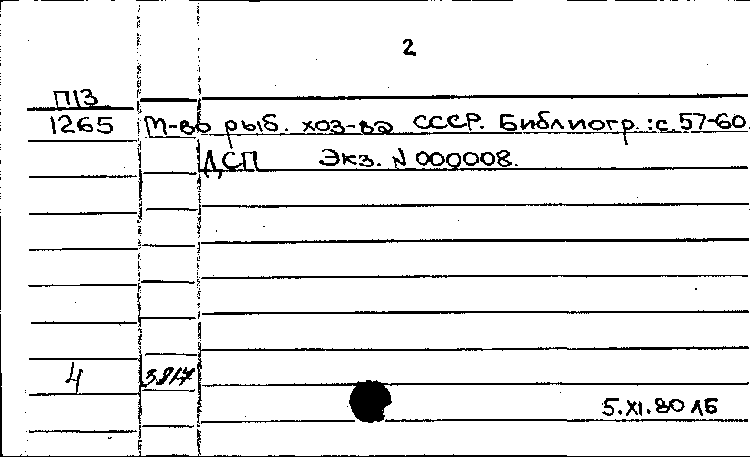 2
П13
1265 М-во рыб. хоз-ва СССР. Библиогр.: с. 57-60.
ДСП Экз. N 000008.
4
5.XI.80 ЛБ